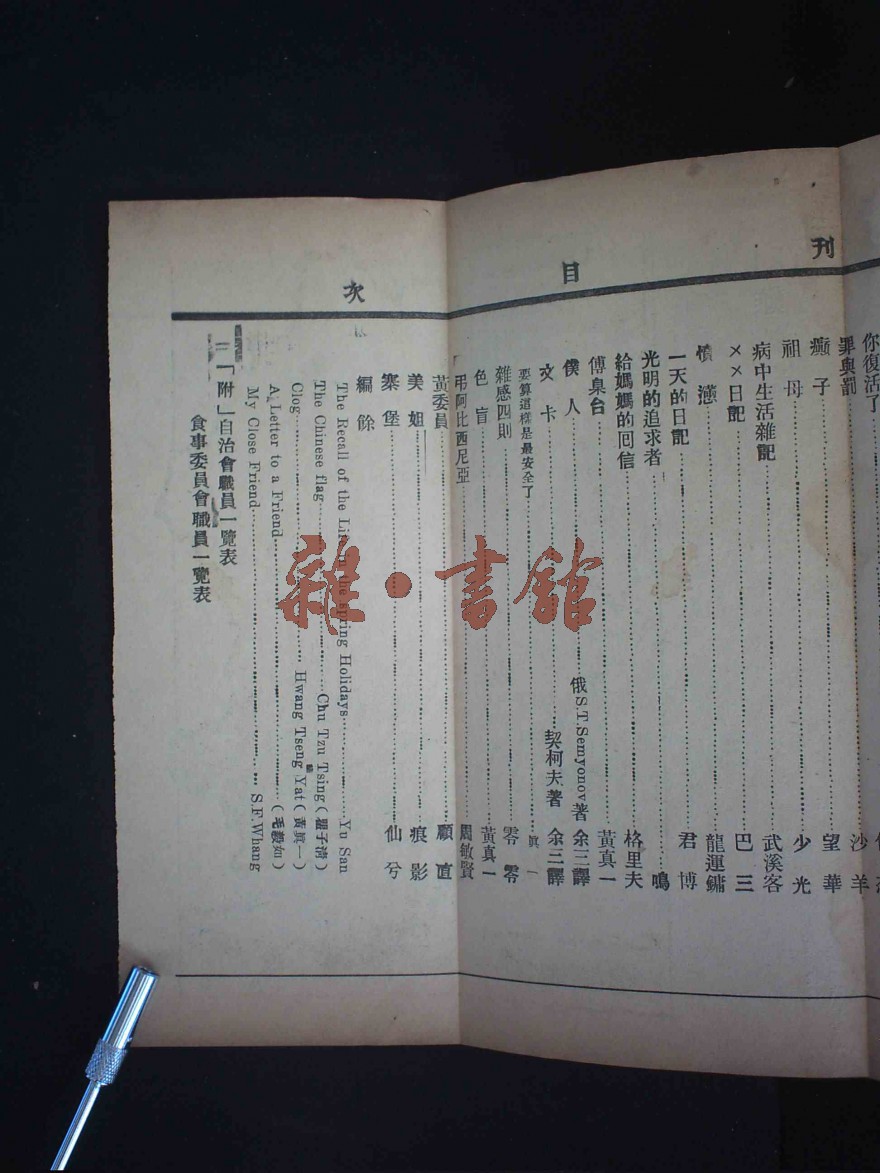 刊 目 次
你復活了
罪與罰……沙羊
癲子……望華
祖母……少光
病中生活雜記……武溪客
××日記……巴三
憤㦖……龍運鏞
一天的日記……君博
光明的追求者……鳴
給媽媽的回信……格里夫
傅臬台……黃真一
僕人……俄S.T.Semyonov著 余三譯
文卡……契柯夫著 余三譯
要算這樣是最安全了……眞一
雜感四則……零零
色盲……黃真一
弔阿比西尼亞……周敏賢
黃委員……顧直
美姐……痕影
寨堡……仙兮
編餘
The Recall of the Life in the spring Holidays……Yu San
The Chinese flag……Chu Tzu Tsing(瞿子清)
Clog……Hwang Tseng Yat(黃眞一)
A Letter to a Friend……(毛毅如)
My Close Friend……S.F.Whang
「附」自治會職員一覽表
食事委員會職員一覽表
雜·書館